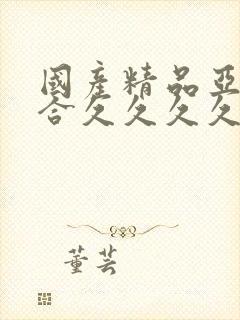 國產精品亞
合久久久久
董芸